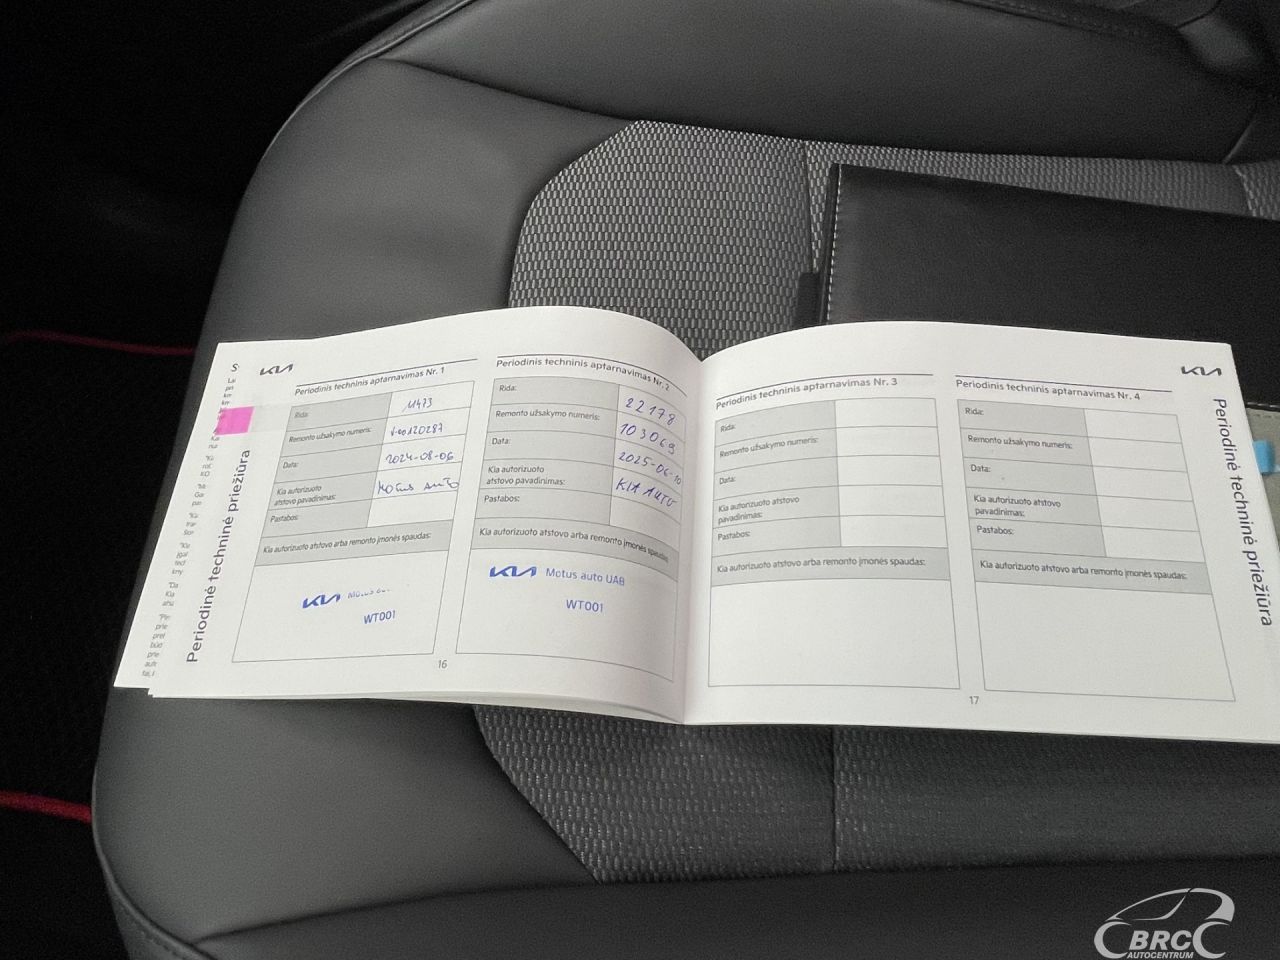 KIA
Periodinis techninis aptarnavimas Nr. 1
Rida: 11473
Remonto užsakymo numeris: V-00120287
Data: 2024-08-06
Kia autorizuoto
atstovo pavadinimas: MOTUS AUTO
Pastabos:
Kia autorizuoto atstovo arba remonto įmonės spaudas:
KIA Motus
WT001
Periodinė techninė priežiūra
16
Periodinis techninis aptarnavimas Nr. 2
Rida: 22178
Remonto užsakymo numeris: 103069
Data: 2025-06-10
Kia autorizuoto
atstovo pavadinimas: KIA AUTO
Pastabos:
Kia autorizuoto atstovo arba remonto įmonės spaudas:
KIA Motus auto UAB
WT001
Periodinis techninis aptarnavimas Nr. 3
Rida:
Remonto užsakymo numeris:
Data:
Kia autorizuoto atstovo
pavadinimas:
Pastabos:
Kia autorizuoto atstovo arba remonto įmonės spaudas:
17
KIA
Periodinis techninis aptarnavimas Nr. 4
Rida:
Remonto užsakymo numeris:
Data:
Kia autorizuoto atstovo
pavadinimas:
Pastabos:
Kia autorizuoto atstovo arba remonto įmonės spaudas:
Periodinė techninė priežiūra
BRC
AUTOCENTRUM